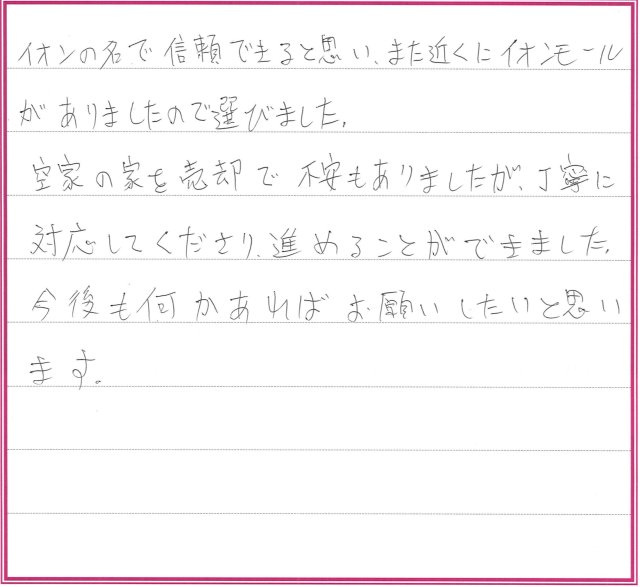 イオンの名で信頼できると思い、また近くにイオンモール
がありましたので選びました。
空家の家を売却で不安もありましたが、丁寧に
対応してくださり、進めることができました。
今後も何かあればお願いしたいと思い
ます。